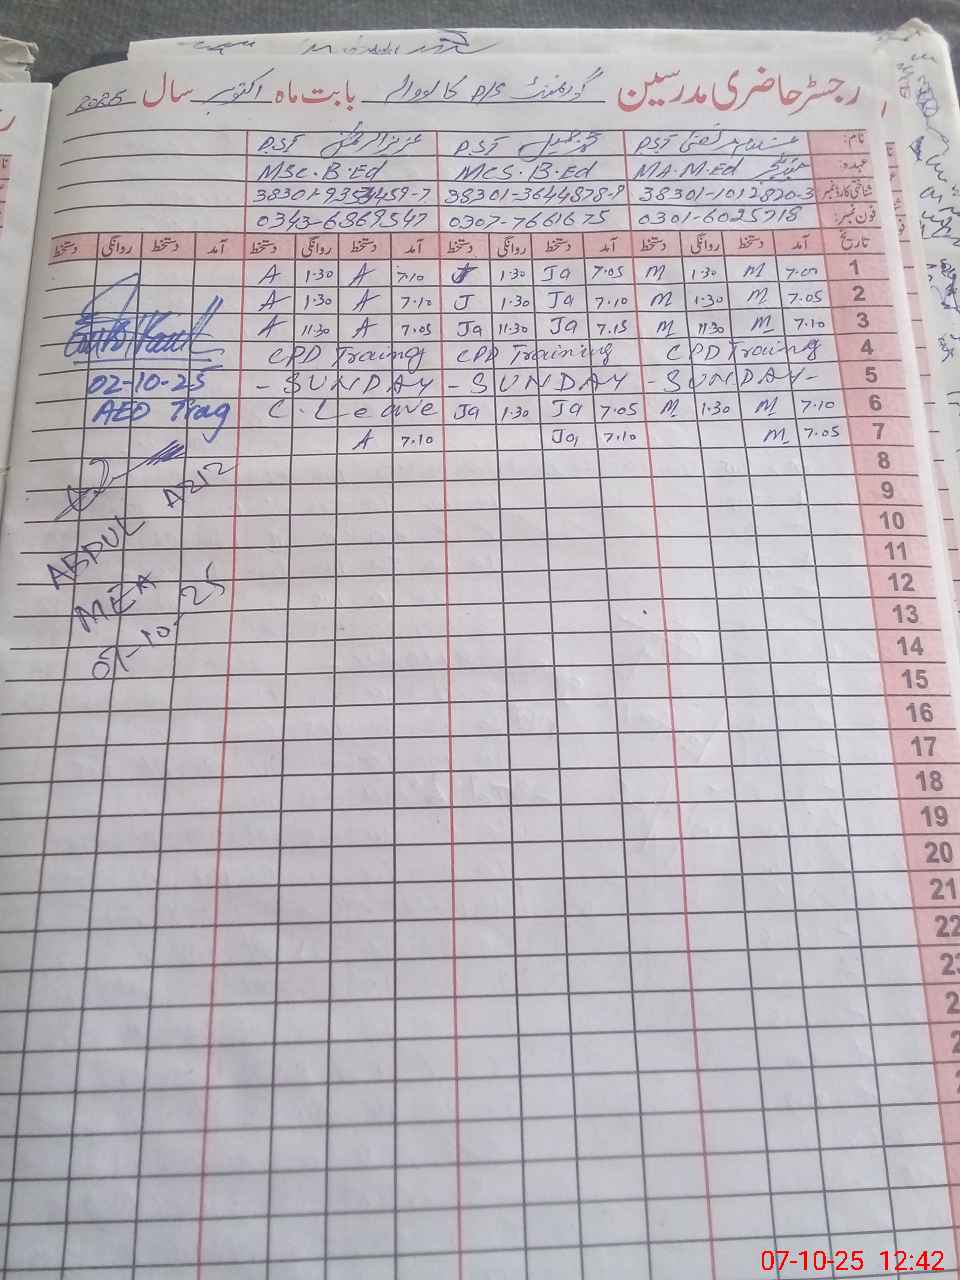 رجسٹر حاضری مدرسین گورنمنٹ P/S بابت ماہ اکتوبر سال 2025
نام: P.ST P.ST عزیز الرحمٰن P.ST
عہدہ: MA.M.Ed MCS.B.Ed MSc.B.Ed
شناختی کارڈ نمبر 38301-1012820-3 38301-3644878-9
فون نمبر: 0301-6025718 0307-7661675 0343-6869547
تاریخ آمد دستخط روانگی دستخط آمد دستخط روانگی دستخط آمد دستخط روانگی دستخط آمد دستخط روانگی دستخط
A 1.30 A 7.10 J 1.30 Ja 7.05 M 1.30 M 1
A 1.30 A 7.10 J 1.30 Ja 7.10 M 1.30 M 7.05 2
A 11.30 A 7.05 Ja 11.30 Ja 7.15 M 11.30 M 7.10 3
CPD Traing CPD Training CPD Traing 4
02-10-25 - SUNDAY - SUNDAY - SUNDAY - 5
AEO C. Leave Ja 1.30 Ja 7.05 M 1.30 M 7.10 6
A 7.10 Ja 7.10 M 7.05 7
8
9
10
11
12
13
14
15
16
17
18
19
20
21
22
ABDUL AZIZ
MEA
07-10-25
07-10-25 12:42